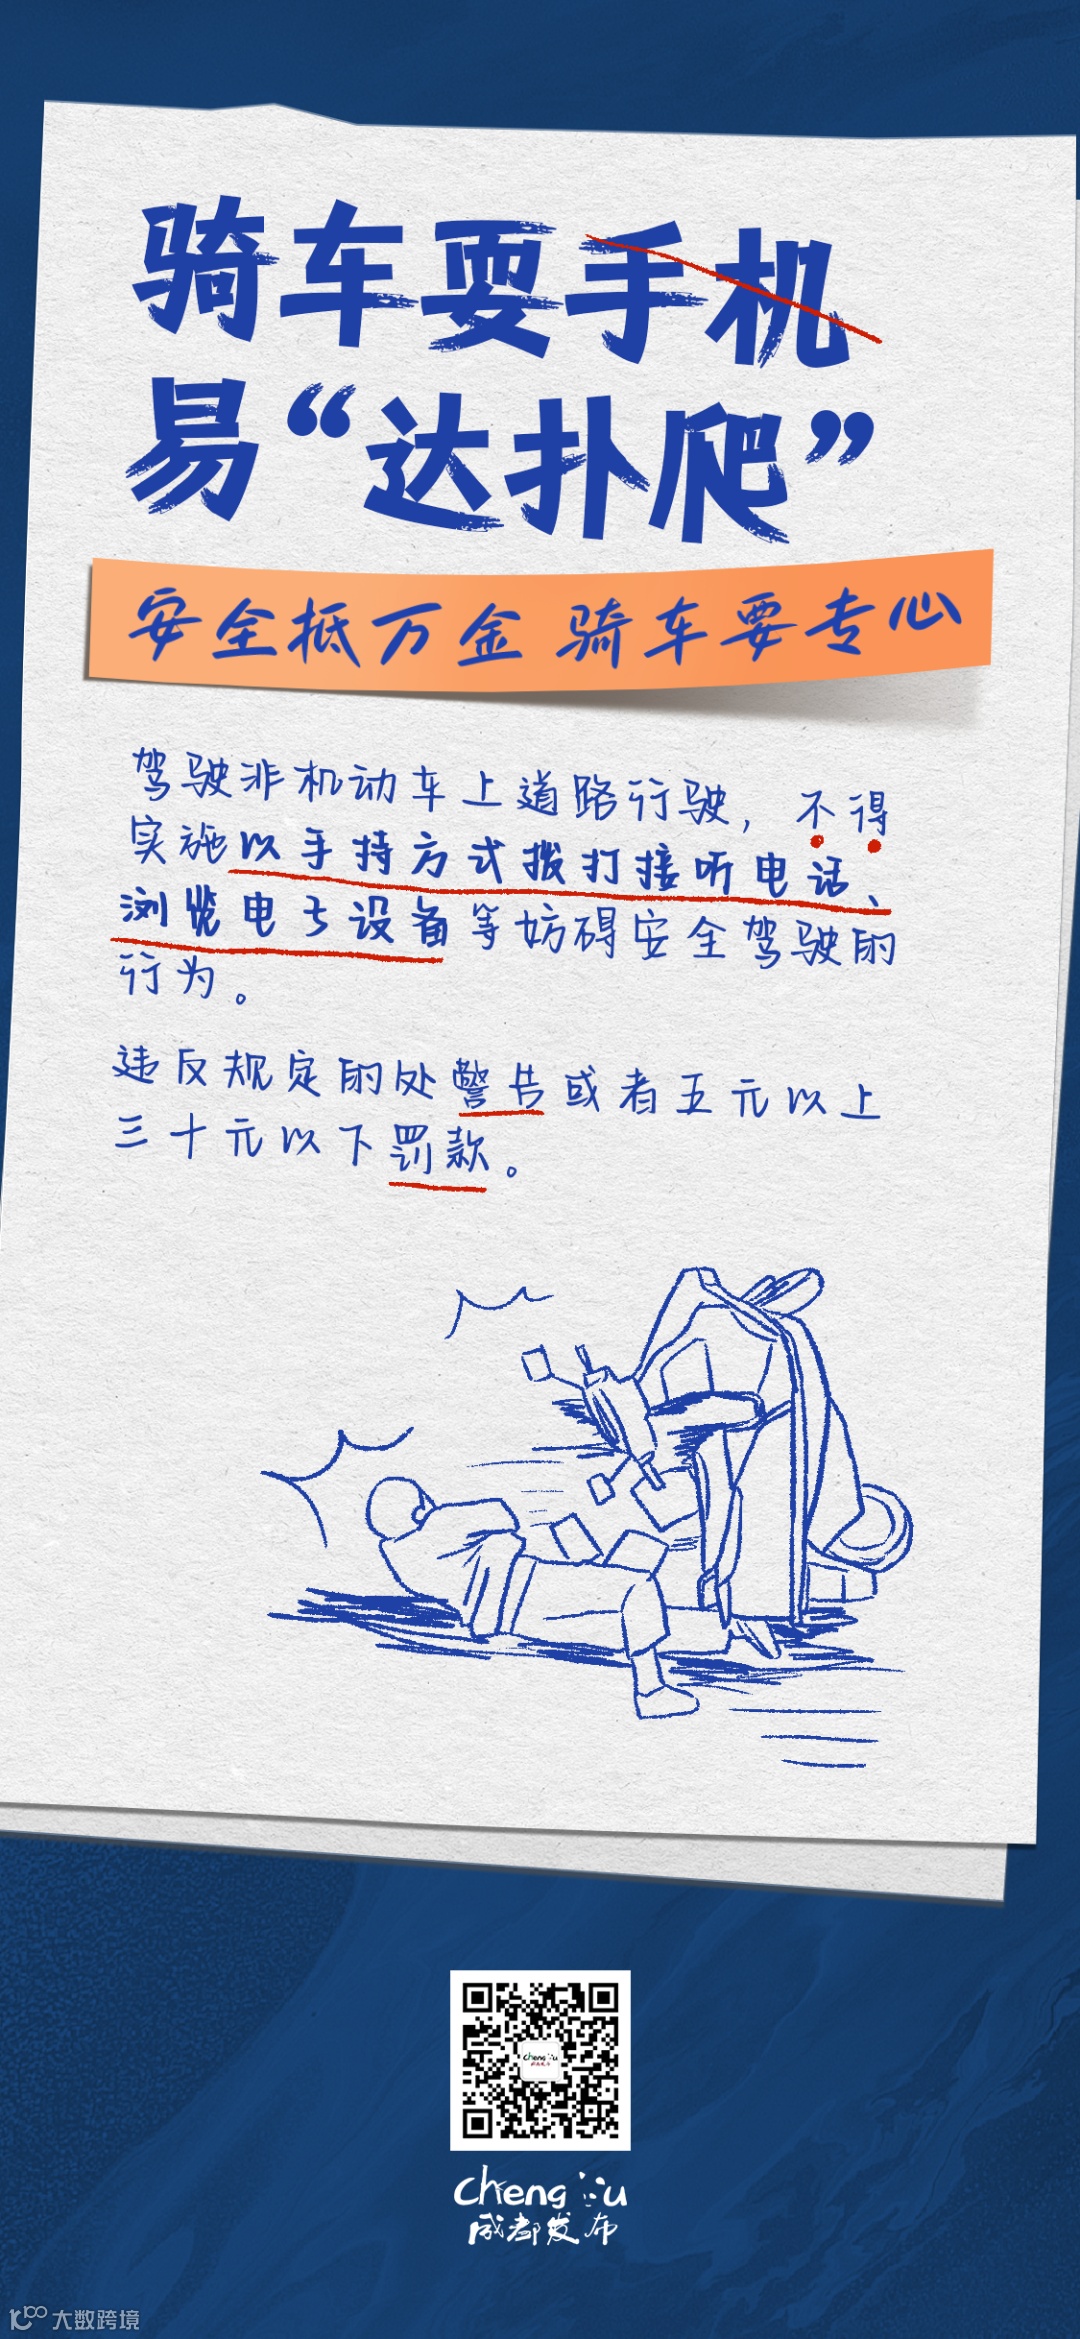 骑车耍手机
易“达扑爬”
安全抵万金 骑车要专心
驾驶非机动车上道路行驶，不得
实施以手持方式拨打接听电话、
浏览电子设备等妨碍安全驾驶的
行为。
违反规定的处警告或者五元以上
三十元以下罚款。
Chengdu
成都发布
Cheng
u
成都发布
大数跨境